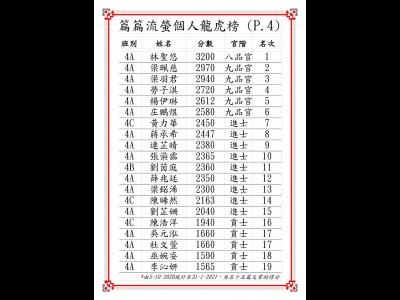 篇篇流螢個人龍虎榜 (P.4)
班別 姓名 分數 官階 名次
4A 林聖悠 3200 八品官 1
4A 梁珮慈 2970 九品官 2
4A 梁羽君 2940 九品官 3
4A 勞子淇 2720 九品官 4
4A 楊伊琳 2612 九品官 5
4A 莊鵬煜 2580 九品官 6
4C 黃力華 2450 進士 7
4A 蔣承希 2447 進士 8
4A 連芷晴 2380 進士 9
4A 張蒅霱 2365 進士 10
4B 劉茵庭 2360 進士 11
4A 薛兆廷 2350 進士 12
4A 梁鍩浠 2300 進士 13
4C 陳晞然 2163 進士 14
4A 劉芷姍 2040 進士 15
4C 陳浩洋 1940 貢士 16
4A 吳元泓 1660 貢士 17
4A 杜文萱 1660 貢士 17
4A 巫婉姿 1590 貢士 18
4A 李沁妍 1565 貢士 19
*由5-10-2020統計至31-1-2021，共五十五篇文章的得分